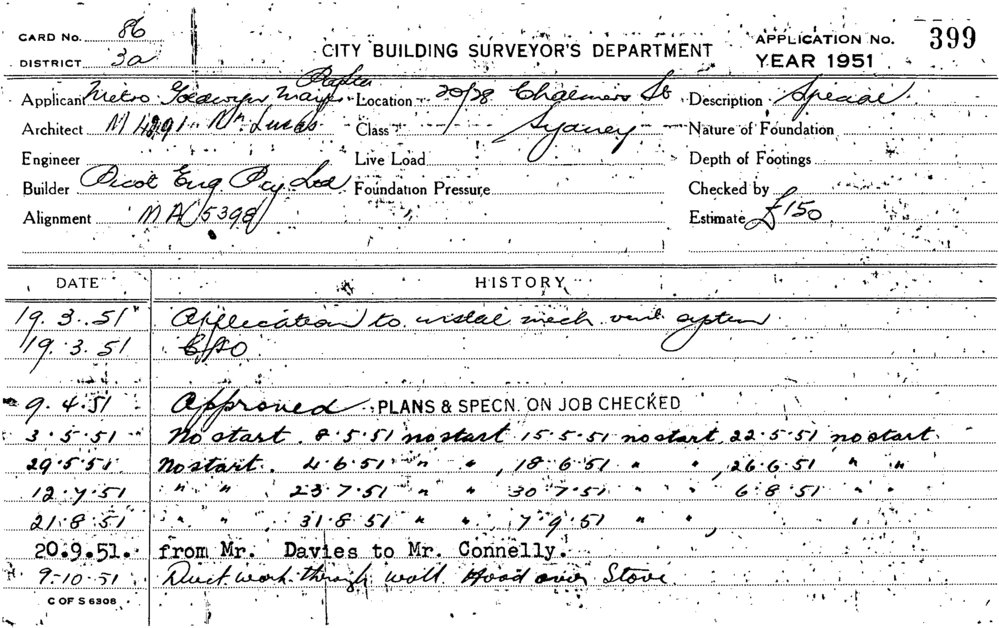 CARD No. 86
DISTRICT 3a
CITY BUILDING SURVEYOR'S DEPARTMENT
APPLICATION No. 399
YEAR 1951
Applicant Metro Goldwyn Mayer Location 20/28 Chalmers St Description Special
Architect M 4291 Mr Lucas Class Sydney Nature of Foundation
Engineer Live Load Depth of Footings
Builder Picot Eng Pty Ltd. Foundation Pressure Checked by
Alignment MA 5398 Estimate £150
DATE HISTORY
19.3.51 Application to instal mech. vent. system
19.3.51
9.4.51 Approved PLANS & SPECN. ON JOB CHECKED
3.5.51 No start. 8.5.51 no start, 15.5.51 no start, 22.5.51 no start.
29.5.51 No start. 4.6.51 " ", 18.6.51 " ", 26.6.51 " "
12.7.51 " " 23.7.51 " " 30.7.51 " " 6.8.51 " "
21.8.51 " " 31.8.51 " " 7.9.51 " "
20.9.51. from Mr. Davies to Mr. Connelly.
9.10.51 Duct work through wall Hood over Stove.
C OF S 6308